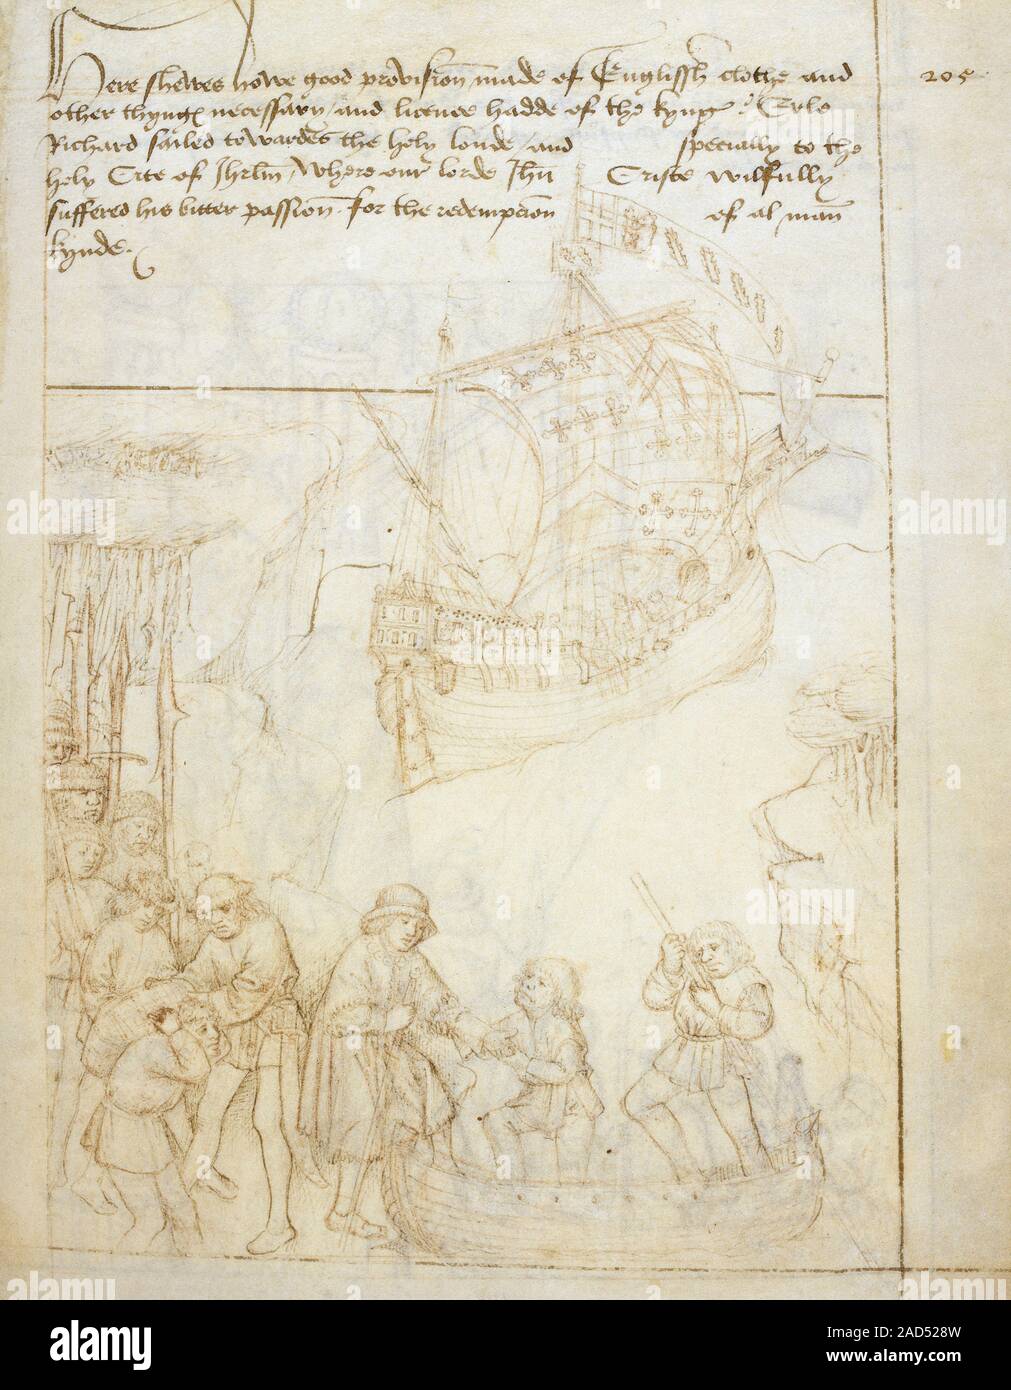 Here shewes howe good provision made of Englissh clothe and
205
other thyngs necessary, and licence hadde of the kyng Erle
Richard sailed towardes the holy londe, and specially to the
holy Cite of Jhrlm, Where our lorde Jhu Criste wilfully
suffered his bitter passion for the redempcion of al man
kynde.
alamy
alamy
alamy
alamy
alamy
alamy
alamy
Image ID: 2AD528W
www.alamy.com